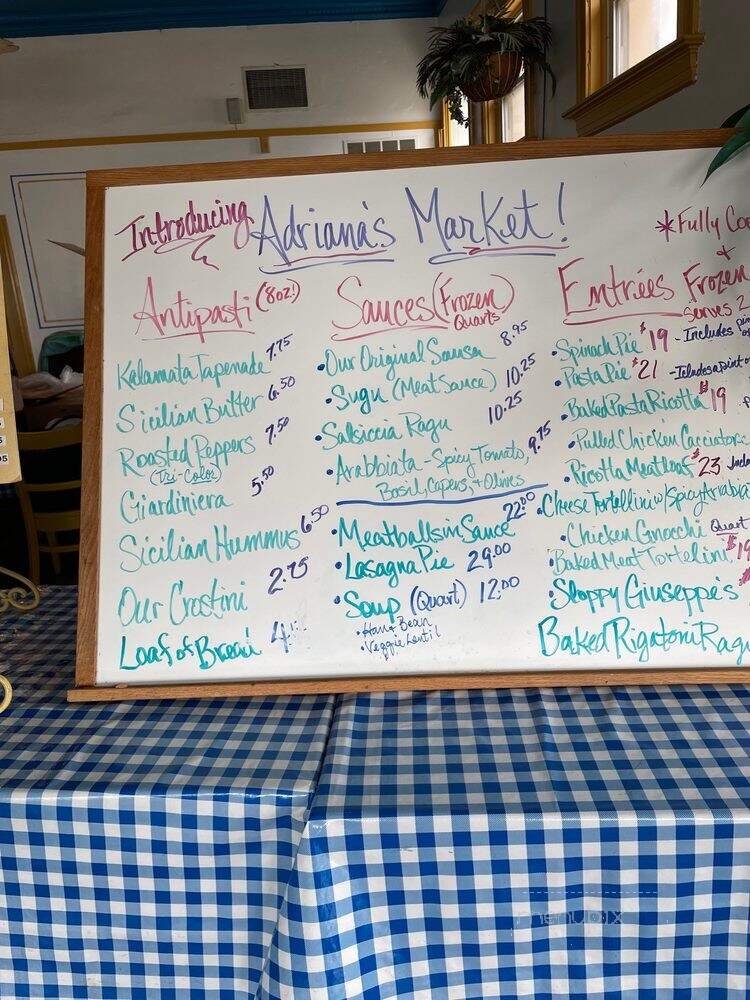 Introducing Adriana's Market!
Antipasti (8oz!)
Kalamata Tapenade 7.75
Sicilian Butter 6.50
Roasted Peppers 7.50
(Tri-Color)
Giardiniera 5.50
Sicilian Hummus 6.50
Our Crostini 2.75
Loaf of Bread 4
Sauces (Frozen)
Quarts
•Our Original Salsa 8.95
•Sugu (Meat Sauce) 10.25
•Salsiccia Ragu 10.25
•Arabbiata - Spicy Tomato, 9.75
Basil, Capers, + Olives
•Meatballs in Sauce 22.00
•Lasagna Pie 29.00
•Soup (Quart) 12.00
•Ham + Bean
•Veggie Lentil
*Fully
+
Entrées Frozen
Serves 2
•Spinach Pie $19 - Includes
•Pasta Pie $21 - Icludes a pint
•Baked Pasta Ricotta $19
•Pulled Chicken Cacciatore
•Ricotta Meatloaf $23
•Cheese Tortellini w/ Spicy Arabia
•Chicken Gnocchi Quart
•Baked Meat Tortelini $19
•Sloppy Giuseppe's $
Baked Rigatoni Ragu
menupix